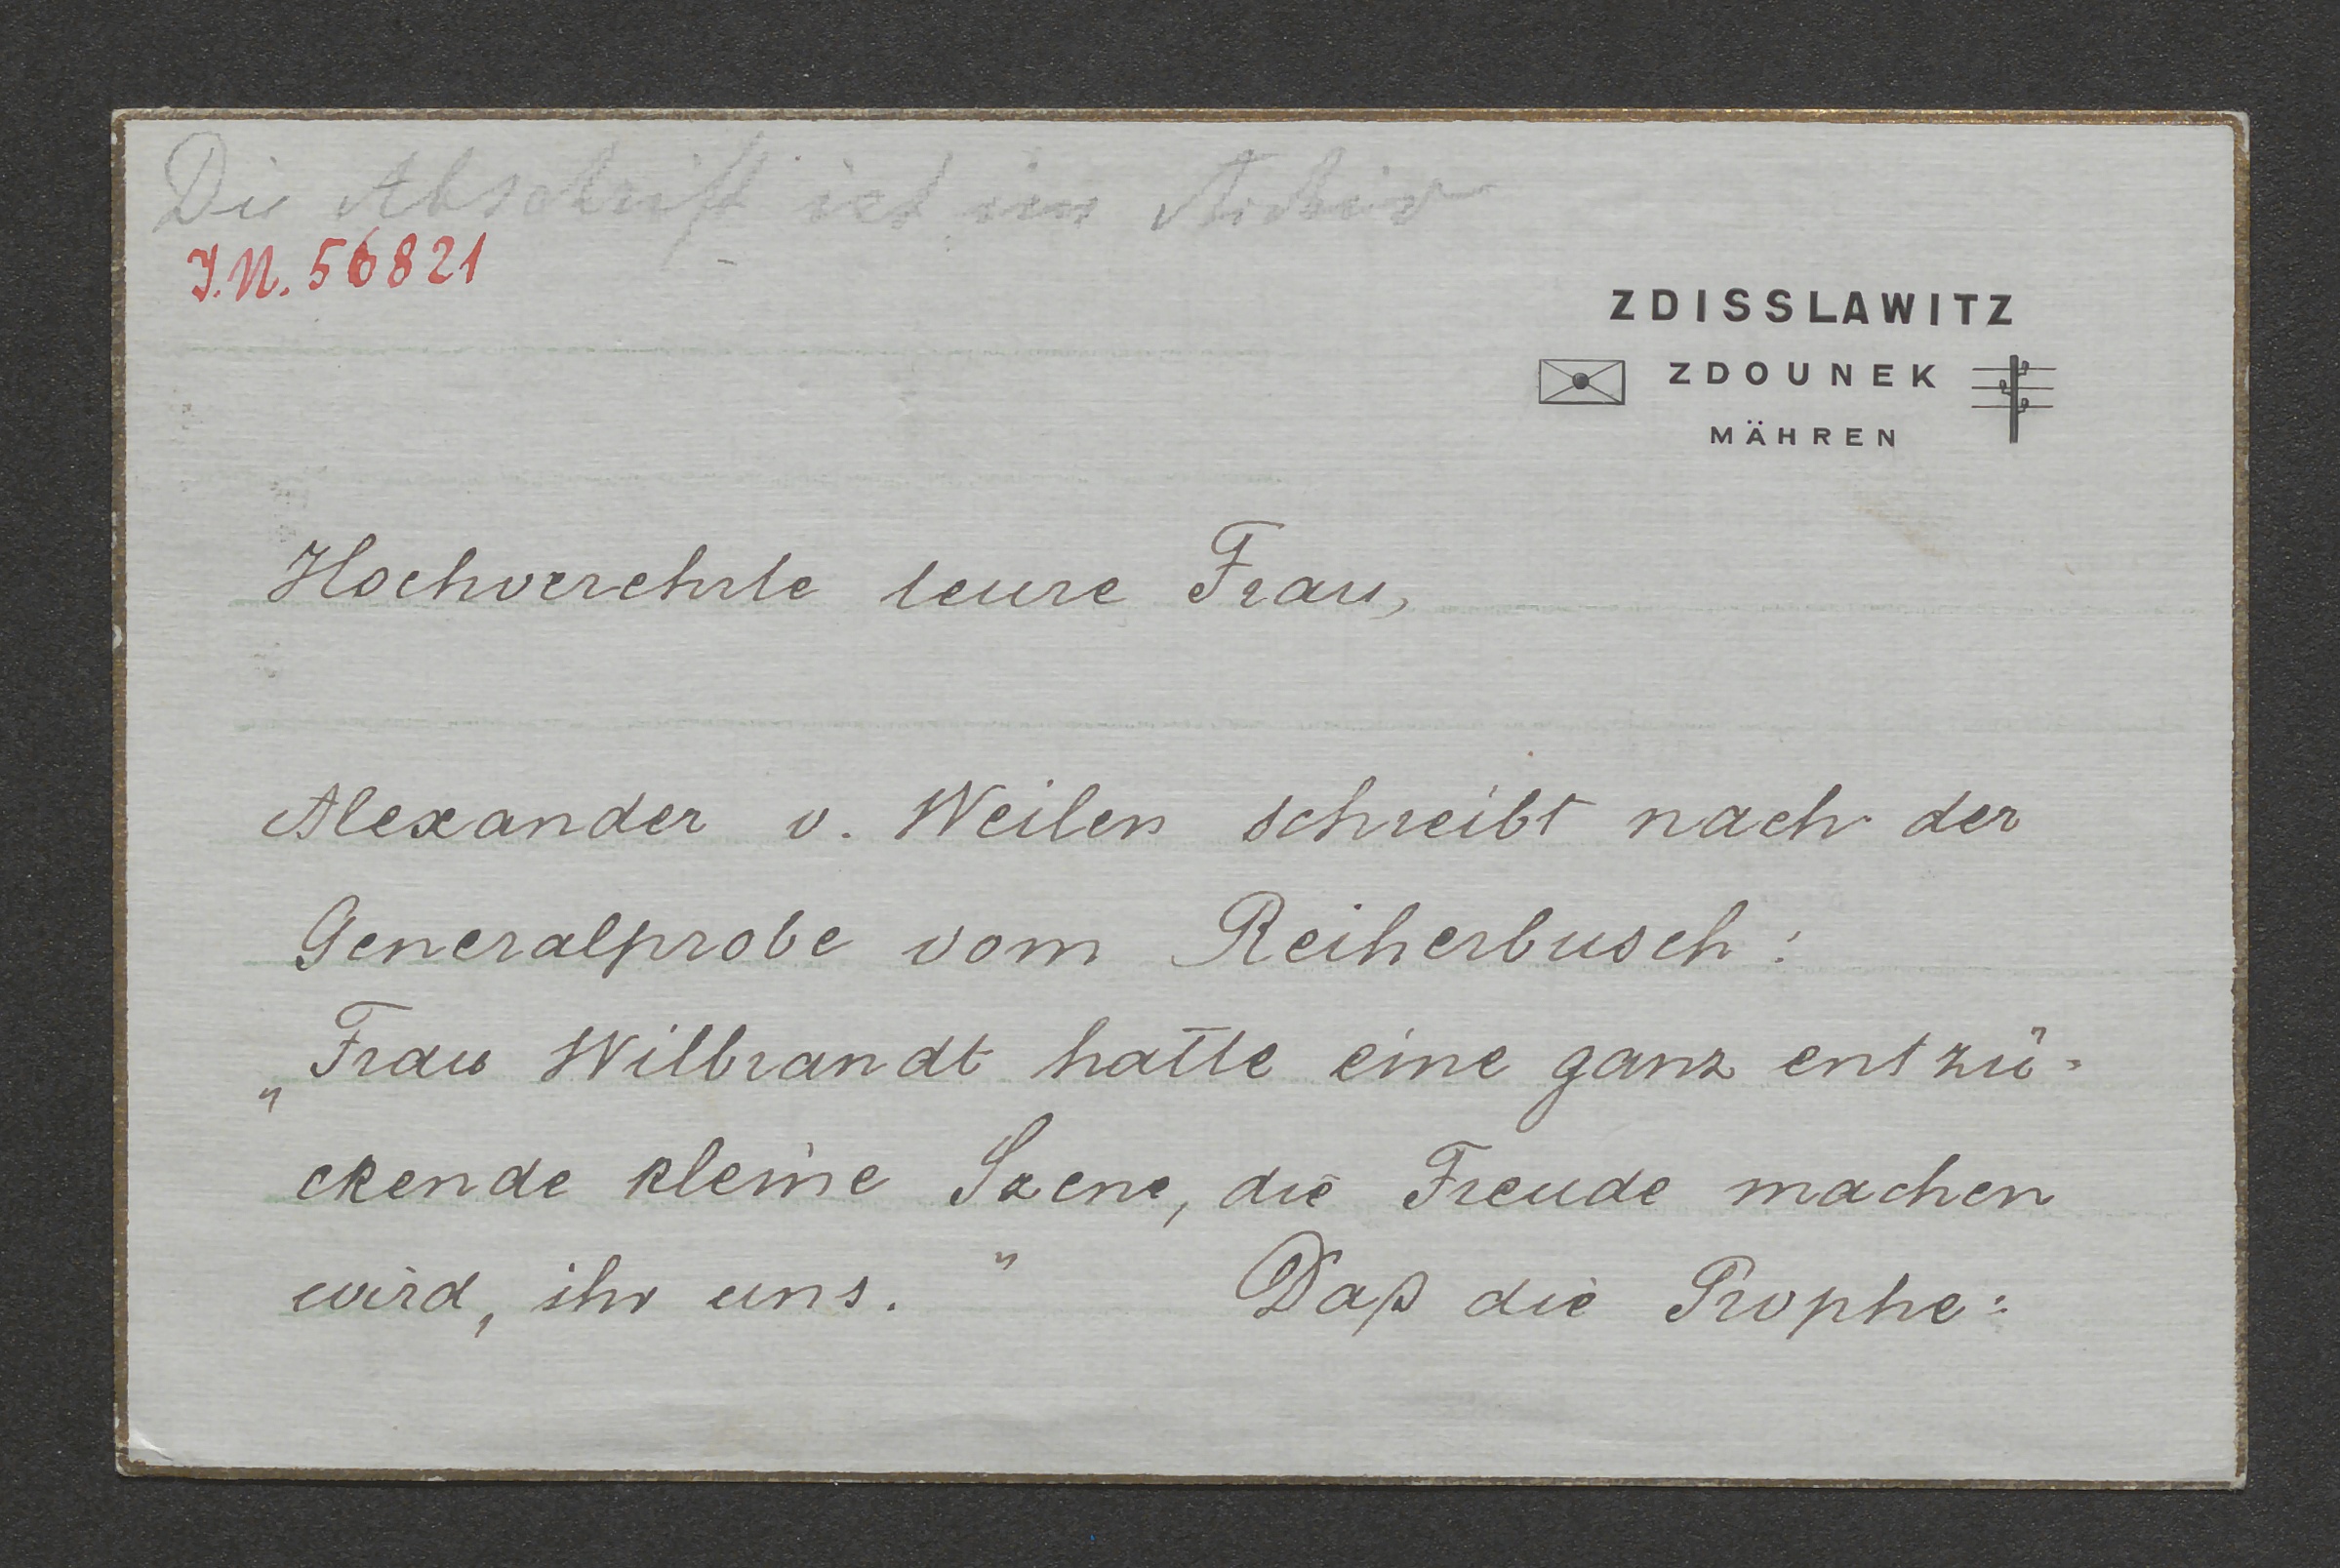 Die Abschrift ist im Archiv
I.N. 56821
ZDISSLAWITZ
ZDOUNEK
MÄHREN
Hochverehrte teure Frau,
Alexander v. Weilen schreibt nach der
Generalprobe vom Reiherbusch:
„Frau Wilbrandt hatte eine ganz entzü-
ckende kleine Szene, die Freude machen
wird, ihr uns." Daß die Prophe-